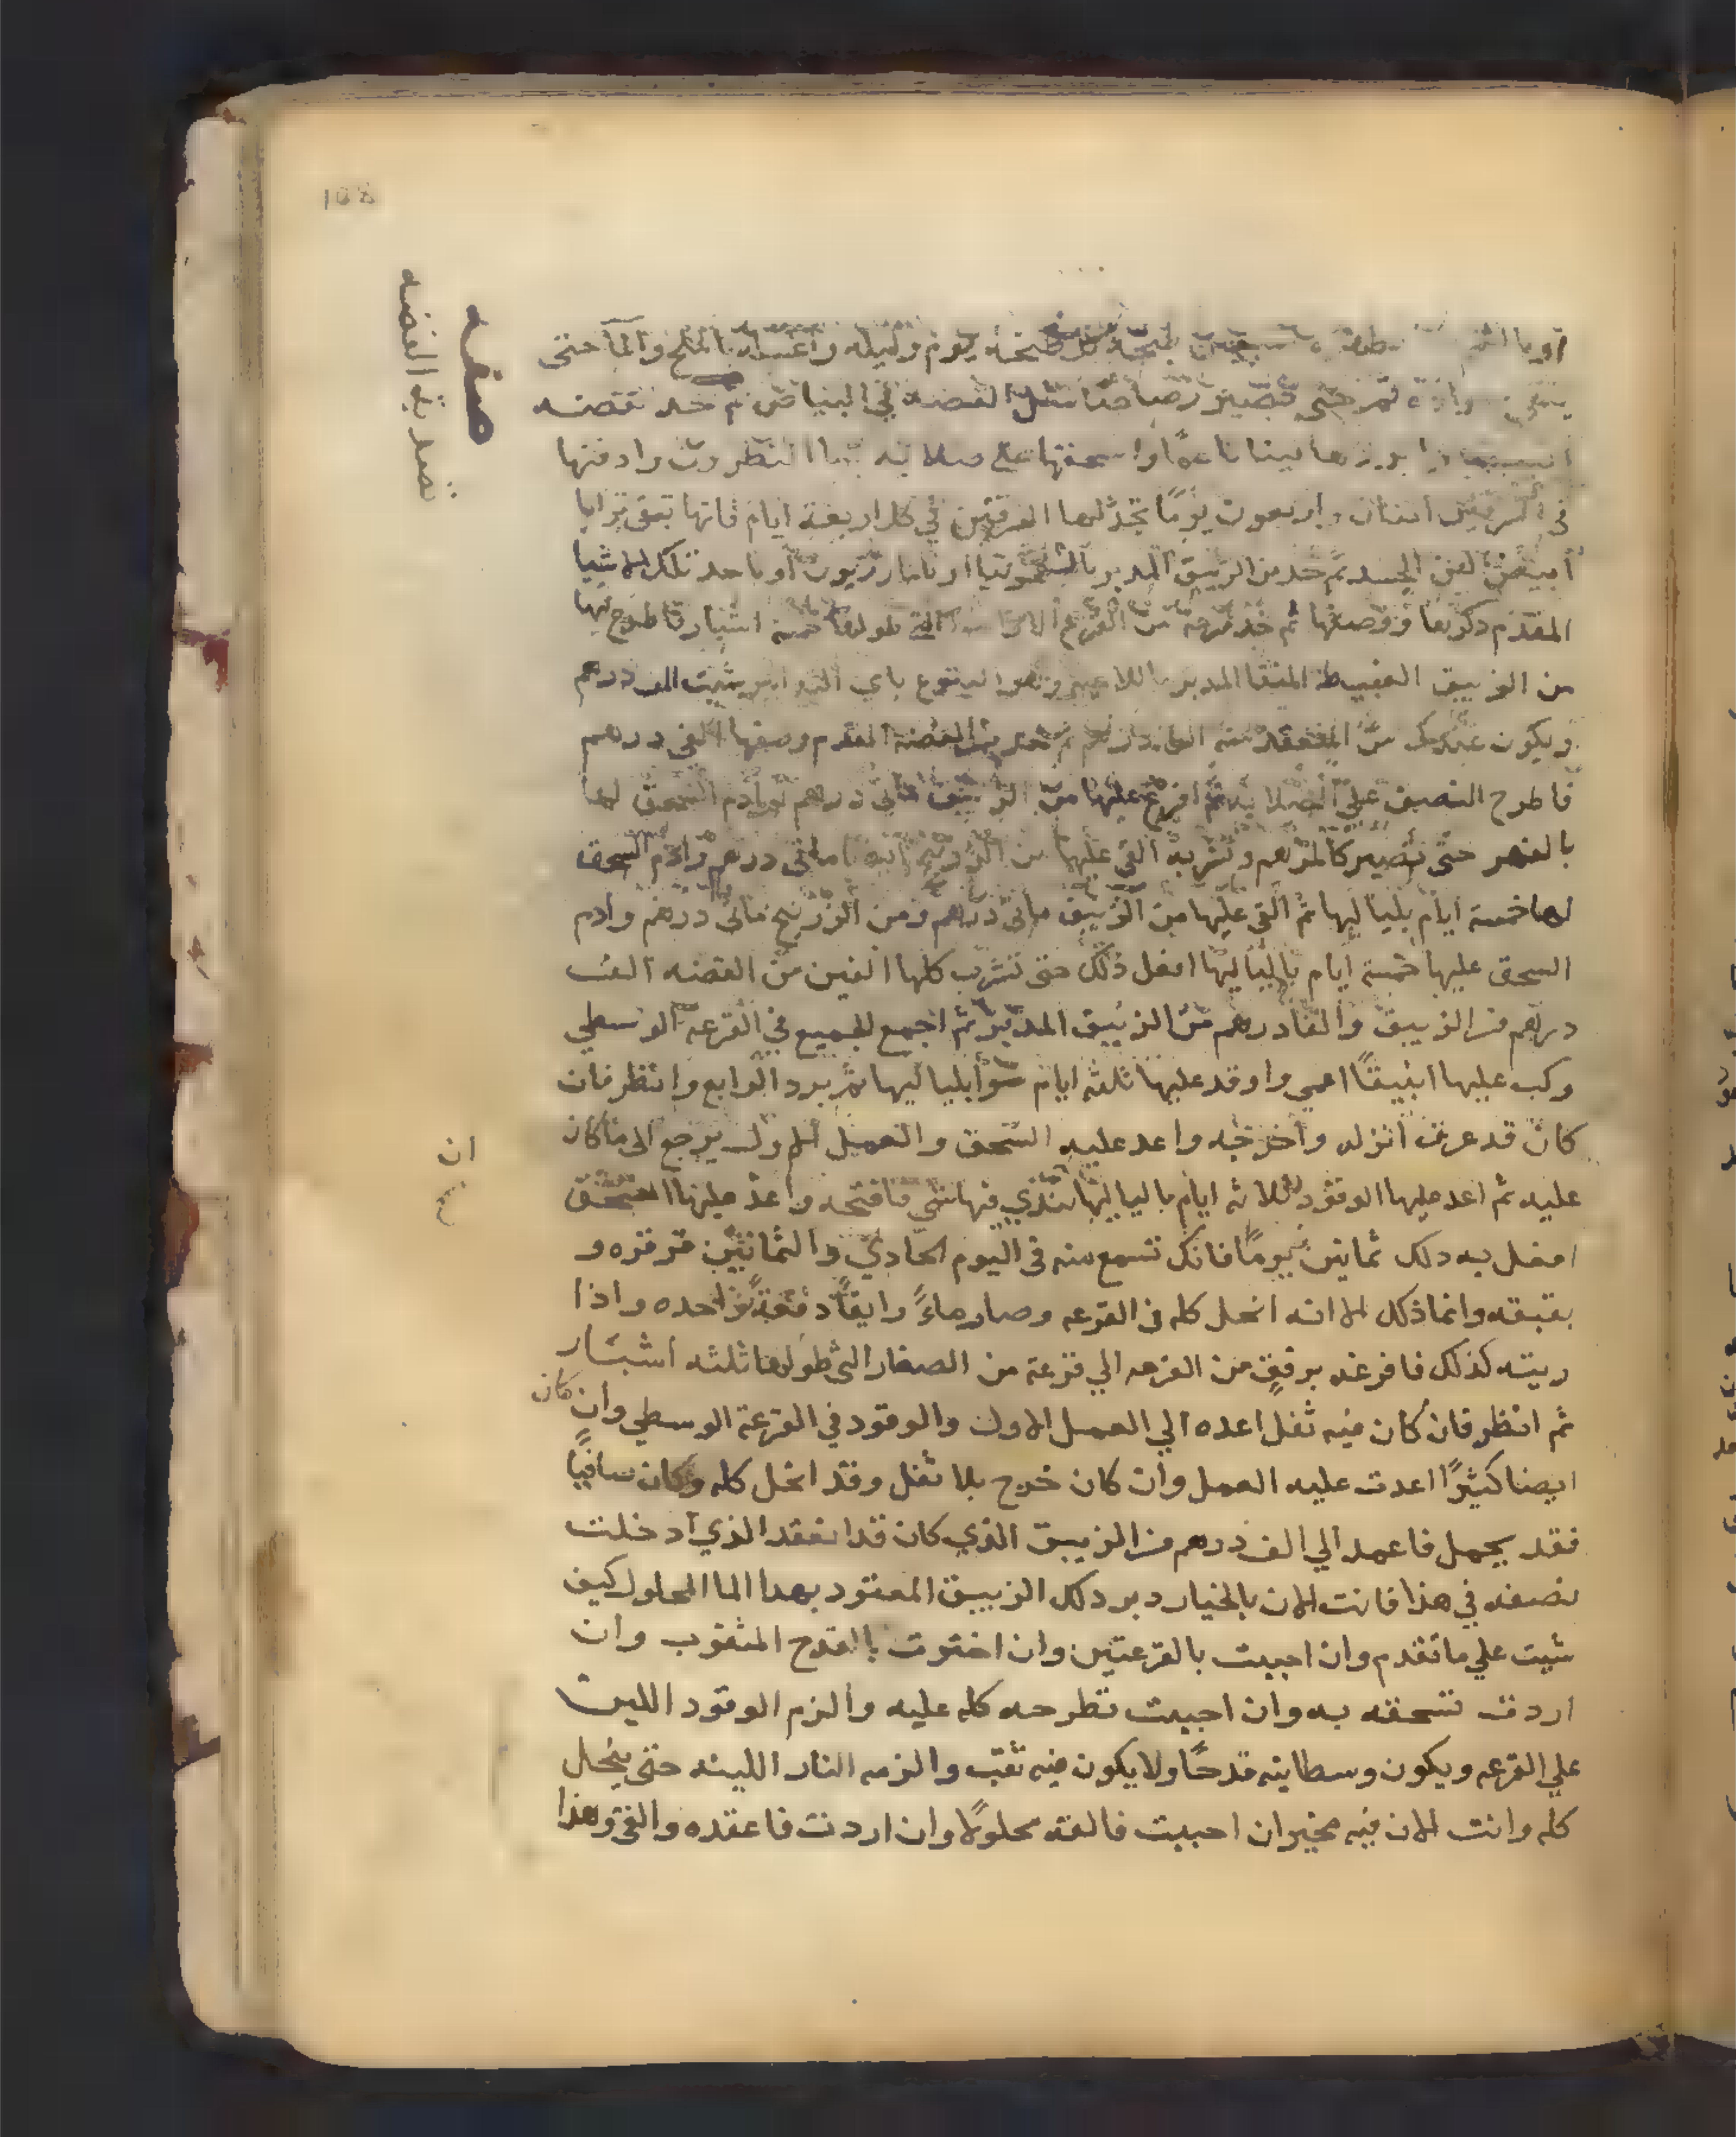 108
صفه
تصدية الفضه
طبخة كل طبخه يوم وليله واغسله بالملح والمآ حتى
حتى تصير رصاصا مثل الفضه في البياض ثم خد
بردها لينا ناعمًا واسحقها على صلايه بما النطرون وادفنها
في السرقين اثنان واربعون يومًا تجدد لها السرقين في كل اربعة ايام فانها تبقى ترابا
أبيض ثم خد من الزيبق المدبر او باحد تلك الاشيا
المقدم ذكرها ووصفها ثم خذ قرعه من القرع التي طولها خمسة اشبار فاطرح فيها
من الزيبق العبيط المنقا المدبر باي التدابير شيت الف درهم
ويكون عندك من المنعقد منه الف درهم ثم خد من الفضه المقدم وصفها الفي درهم
فاطرح النصف على الصلايه ثم افرغ عليها من الزيبق مايتي درهم وادم السحق لها
بالفهر حتى تصير كالمرهم وتشربه القي عليها من مايتي درهم وادم السحق
لها خمسة ايام بلياليها ثم القى عليها من الزيبق مايتى درهم ومن الزرنيخ مايتى درهم وادم
السحق عليها خمسة ايام بلياليها افعل ذلك حتى تشرب كلها الفين من الفضه الف
درهم من الزيبق والفا درهم من الزيبق المدبر ثم اجمع الجميع في القرعه الوسطي
وركب عليها انبيقًا اعمي واوقد عليها ثلثة ايام سوآ بلياليها ثم برد الرابع وانظر فان
كان قد عرق انزله واخرجه واعد عليه السحق والعمل الاول يرجع الى ما كان
ان
عليه ثم اعد عليها الوقود ثلاثه ايام بلياليها شي فافتحه واعد عليها السحق
افعل به دلك ثمانين يومًا فانك تسمع منه في اليوم الحادي والثمانين قرقره و
بقبقه وانما ذلك لانه انحل كله في القرعه وصار ماءً رايقًا دفعةً واحده واذا
ريته كذلك فافرغه برفقٍ من القرعه الي قرعة من الصغار التي طولها ثلثه اشبار
ثم انظر فان كان فيه ثفل اعده الي العمل الاول والوقود في القرعة الوسطي وان كان
ايضا كثيرًا اعدت عليه العمل وان كان خرج بلا ثفل وقد انحل كله وكان صافيًا
فقد يجمل فاعمد الي الف درهم من الزيبق الذي كان قد انعقد الذي ادخلت
نصفه في هذا فانت الان بالخيار دبر دلك الزيبق المعقود بهدا الما المحلول كيف
شيت علي ما تقدم وان احببت بالقرعتين وان اخترت بالقدح المثقوب وان
اردت تسحقه به وان احببت تطرحه كله عليه والزم الوقود اللين
علي القرعه ويكون وسطانيه قدحًا ولا يكون فيه ثقب والزمه النار اللينه حتى ينحل
كله وانت الان فيه مخير ان احببت فالقه محلولًا وان اردت فاعقده والقى وهذا